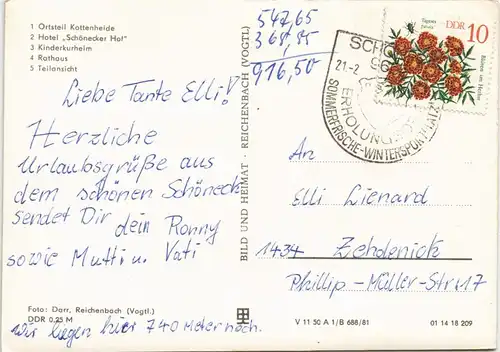 1 Ortsteil Kottenheide
2 Hotel „Schönecker Hof"
3 Kinderkurheim
4 Rathaus
5 Teilansicht
547,65
916,50
Liebe Tante Elli!
Herzliche
Urlaubsgrüße aus
dem schönen Schöneck
sendet Dir dein Ronny
sowie Mutti u. Vati
wir liegen hier 740 Meter hoch.
Foto: Darr, Reichenbach (Vogtl.)
DDR 0,25 M
BILD UND HEIMAT · REICHENBACH (VOGTL)
21-2
ERHOLUNGS
SOMMERFRISCHE-WINTERSPORTPLATZ
Tagetes patula
DDR 10
An
Elli Lienard
1434 Zehdenick
Phillip-Müller-Str. 17
V 11 50 A 1/B 688/81
01 14 18 209